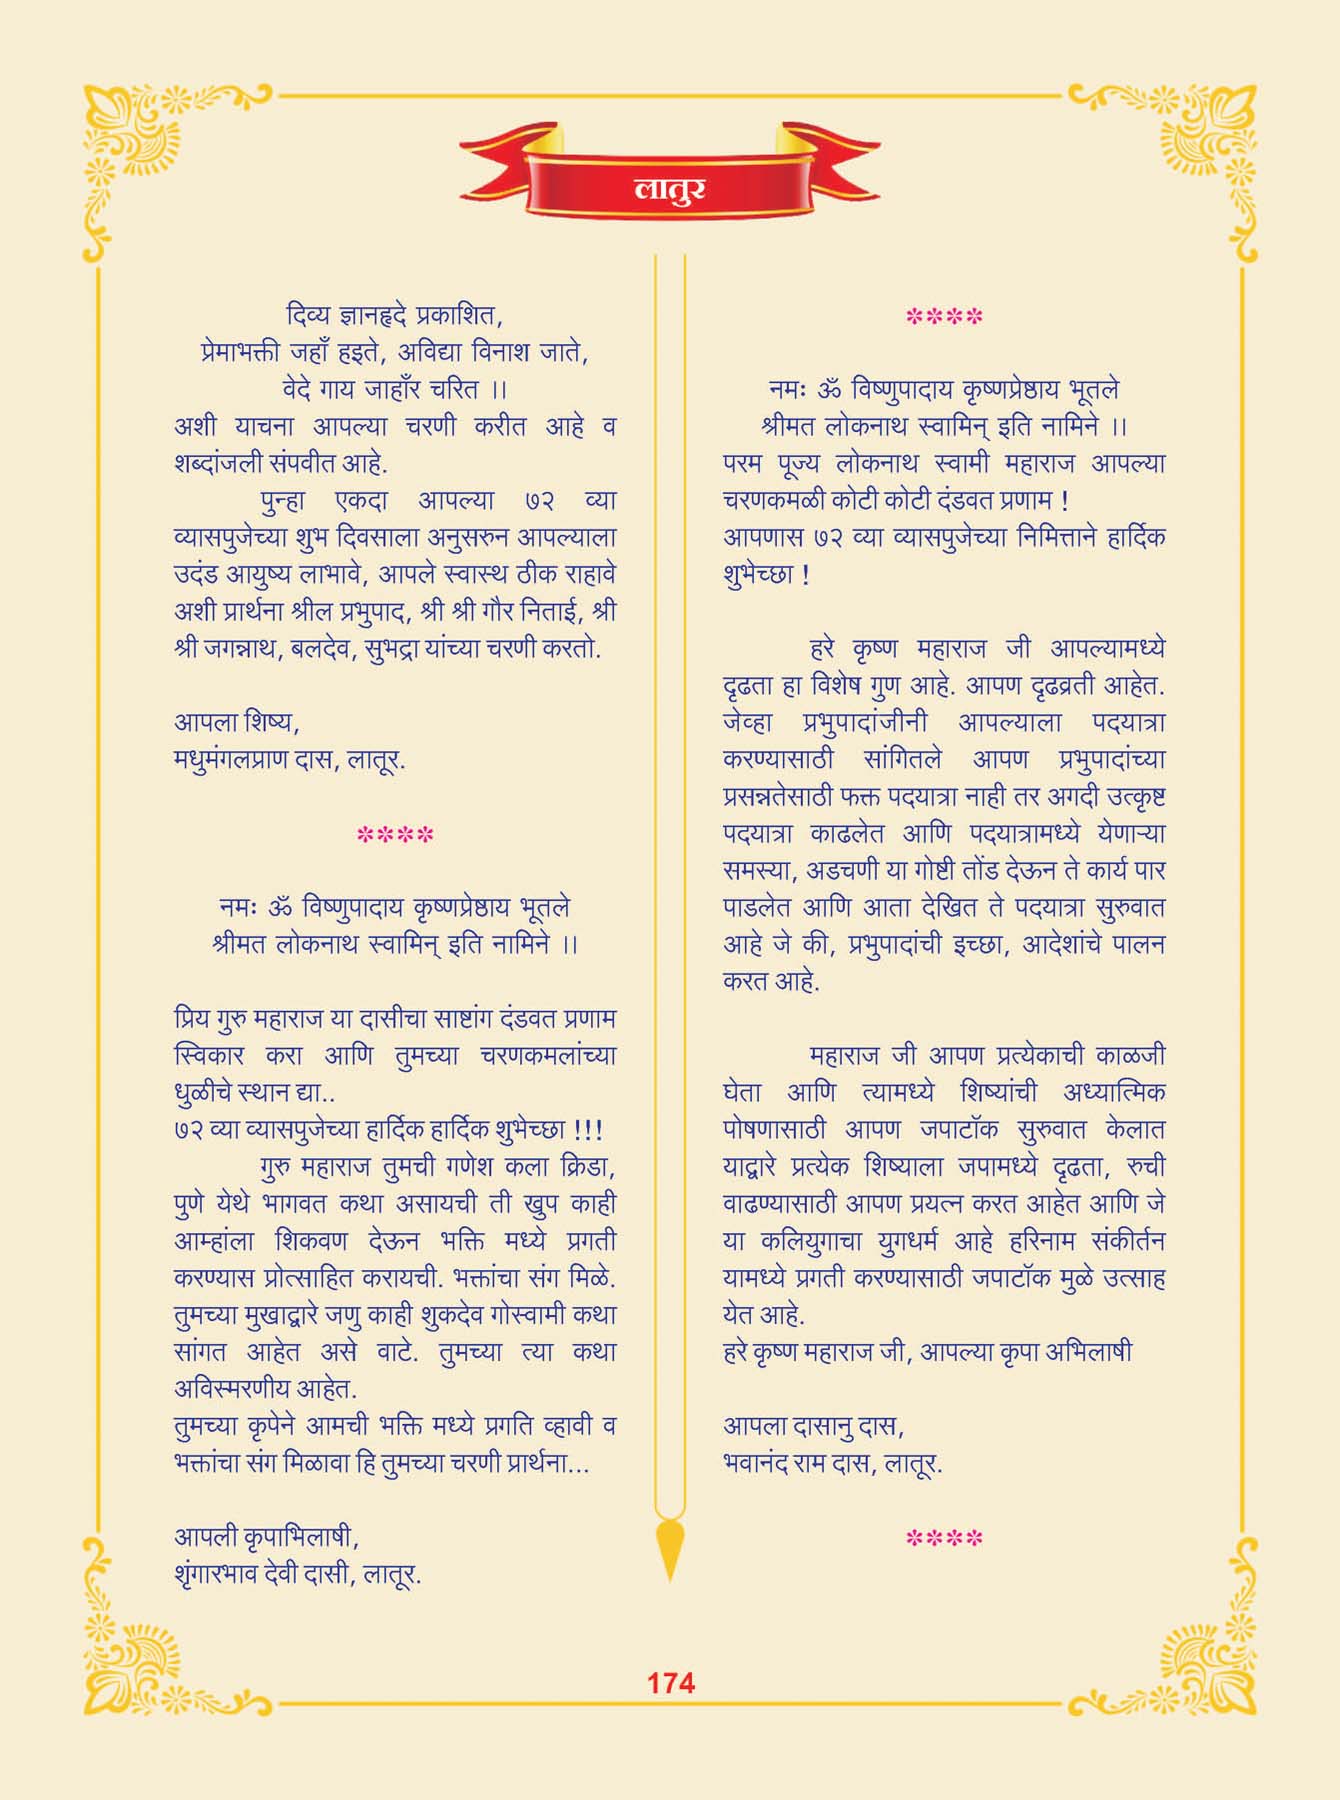 लातुर
दिव्य ज्ञानहृदे प्रकाशित,
प्रेमाभक्ती जहाँ हइते, अविद्या विनाश जाते,
वेदे गाय जाहाँर चरित ।।
अशी याचना आपल्या चरणी करीत आहे व
शब्दांजली संपवीत आहे.
पुन्हा एकदा आपल्या ७२ व्या
व्यासपुजेच्या शुभ दिवसाला अनुसरुन आपल्याला
उदंड आयुष्य लाभावे, आपले स्वास्थ ठीक राहावे
अशी प्रार्थना श्रील प्रभुपाद, श्री श्री गौर निताई, श्री
श्री जगन्नाथ, बलदेव, सुभद्रा यांच्या चरणी करतो.
आपला शिष्य,
मधुमंगलप्राण दास, लातूर.
****
नमः ॐ विष्णुपादाय कृष्णप्रेष्ठाय भूतले
श्रीमत लोकनाथ स्वामिन् इति नामिने ।।
प्रिय गुरु महाराज या दासीचा साष्टांग दंडवत प्रणाम
स्विकार करा आणि तुमच्या चरणकमलांच्या
धुळीचे स्थान द्या..
७२ व्या व्यासपुजेच्या हार्दिक हार्दिक शुभेच्छा !!!
गुरु महाराज तुमची गणेश कला क्रिडा,
पुणे येथे भागवत कथा असायची ती खुप काही
आम्हांला शिकवण देऊन भक्ति मध्ये प्रगती
करण्यास प्रोत्साहित करायची. भक्तांचा संग मिळे.
तुमच्या मुखाद्वारे जणु काही शुकदेव गोस्वामी कथा
सांगत आहेत असे वाटे. तुमच्या त्या कथा
अविस्मरणीय आहेत.
तुमच्या कृपेने आमची भक्ति मध्ये प्रगति व्हावी व
भक्तांचा संग मिळावा हि तुमच्या चरणी प्रार्थना...
आपली कृपाभिलाषी,
शृंगारभाव देवी दासी, लातूर.
****
नमः ॐ विष्णुपादाय कृष्णप्रेष्ठाय भूतले
श्रीमत लोकनाथ स्वामिन् इति नामिने ।।
परम पूज्य लोकनाथ स्वामी महाराज आपल्या
चरणकमळी कोटी कोटी दंडवत प्रणाम !
आपणास ७२ व्या व्यासपुजेच्या निमित्ताने हार्दिक
शुभेच्छा !
हरे कृष्ण महाराज जी आपल्यामध्ये
दृढता हा विशेष गुण आहे. आपण दृढव्रती आहेत.
जेव्हा प्रभुपादांजीनी आपल्याला पदयात्रा
करण्यासाठी सांगितले आपण प्रभुपादांच्या
प्रसन्नतेसाठी फक्त पदयात्रा नाही तर अगदी उत्कृष्ट
पदयात्रा काढलेत आणि पदयात्रामध्ये येणाऱ्या
समस्या, अडचणी या गोष्टी तोंड देऊन ते कार्य पार
पाडलेत आणि आता देखित ते पदयात्रा सुरुवात
आहे जे की, प्रभुपादांची इच्छा, आदेशांचे पालन
करत आहे.
महाराज जी आपण प्रत्येकाची काळजी
घेता आणि त्यामध्ये शिष्यांची अध्यात्मिक
पोषणासाठी आपण जपाटॉक सुरुवात केलात
याद्वारे प्रत्येक शिष्याला जपामध्ये दृढता, रुची
वाढण्यासाठी आपण प्रयत्न करत आहेत आणि जे
या कलियुगाचा युगधर्म आहे हरिनाम संकीर्तन
यामध्ये प्रगती करण्यासाठी जपाटॉक मुळे उत्साह
येत आहे.
हरे कृष्ण महाराज जी, आपल्या कृपा अभिलाषी
आपला दासानु दास,
भवानंद राम दास, लातूर.
****
174